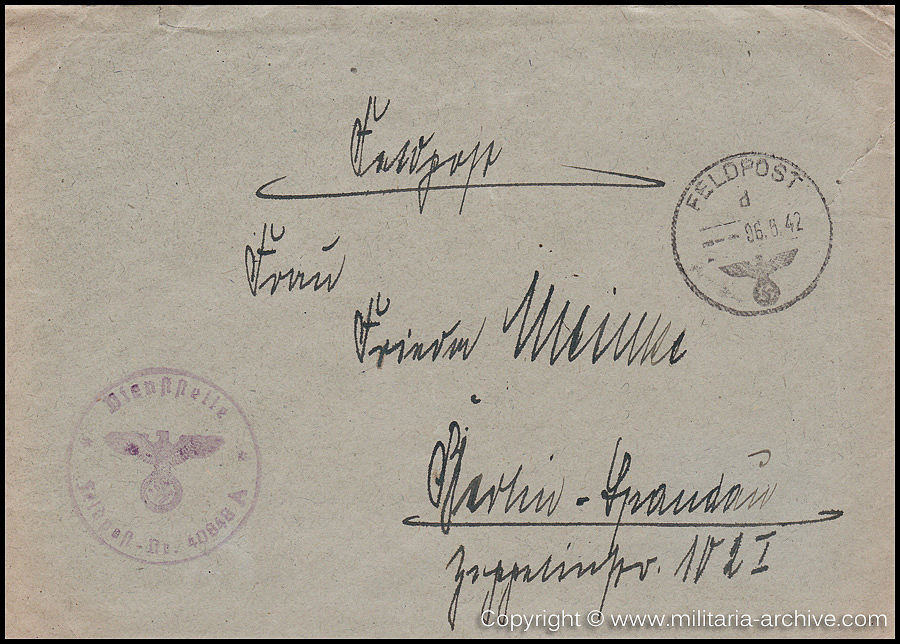 Feldpost
FELDPOST
d
06.6.42
Frau
Frieda Meinke
Dienststelle
Feldpost-Nr. 40848 A
Berlin-Spandau
Zeppelinstr. 102 I
Copyright © www.militaria-archive.com